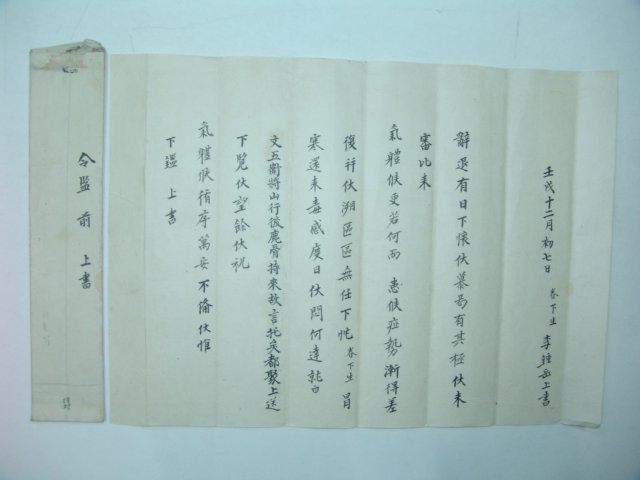 壬戌十二月初七日 眷下生 李鍾岳上書
辭退有日下懷伏慕曷有其極伏未
審比來
氣體候更若何而 患候症勢漸得差
復幷伏溯區區無任下忱眷下生 冒
寒還來毒感度日伏悶何達就白
文五衛將山行後鹿骨持來故言托矣都聚上送
下覽伏望餘伏祝
氣體候循序萬安不備伏惟
下鑑 上書
令監前 上書